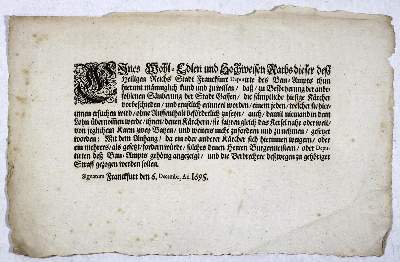 Eines Wohl-Edlen und Hochweisen Raths dieser deß
Heiligen Reichs Stadt Franckfurt Deputirte des Bau-Ampts thun
hiermit männiglich kund und zuwissen / daß / zu Beförderung der anbe-
fohlenen Säuberung der Stadt Gassen / die sämptliche hiesige Kärcher
vorbeschieden / und ernstlich erinnert worden / einem jeden / welcher sie hier-
innen ersuchen wird / ohne Auffenthalt beförderlich zu seyn / auch / damit niemand in dem
Lohn übernommen werde / ihnen / denen Kärchern / sie fahren gleich das Kersel nahe oder weit /
von jeglichem Karrn zwey Batzen / und weiters nicht zu fordern und zu nehmen / gesetzet
worden: Mit dem Anhang / da ein oder anderer Kärcher sich hierinnen wegern / oder
ein mehrers / als gesetzt / fordern würde / solches denen Herren Burgermeistern / oder Depu-
tirten deß Bau-Ampts gehörig angezeigt / und die Verbrechere deßwegen zu gehöriger
Straff gezogen werden sollen.
Signatum Franckfurt den 6. Decembr. An. 1695.